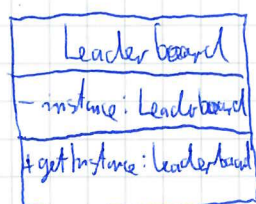 Leaderboard
- instance: Leaderboard
+ getInstance: Leaderboard